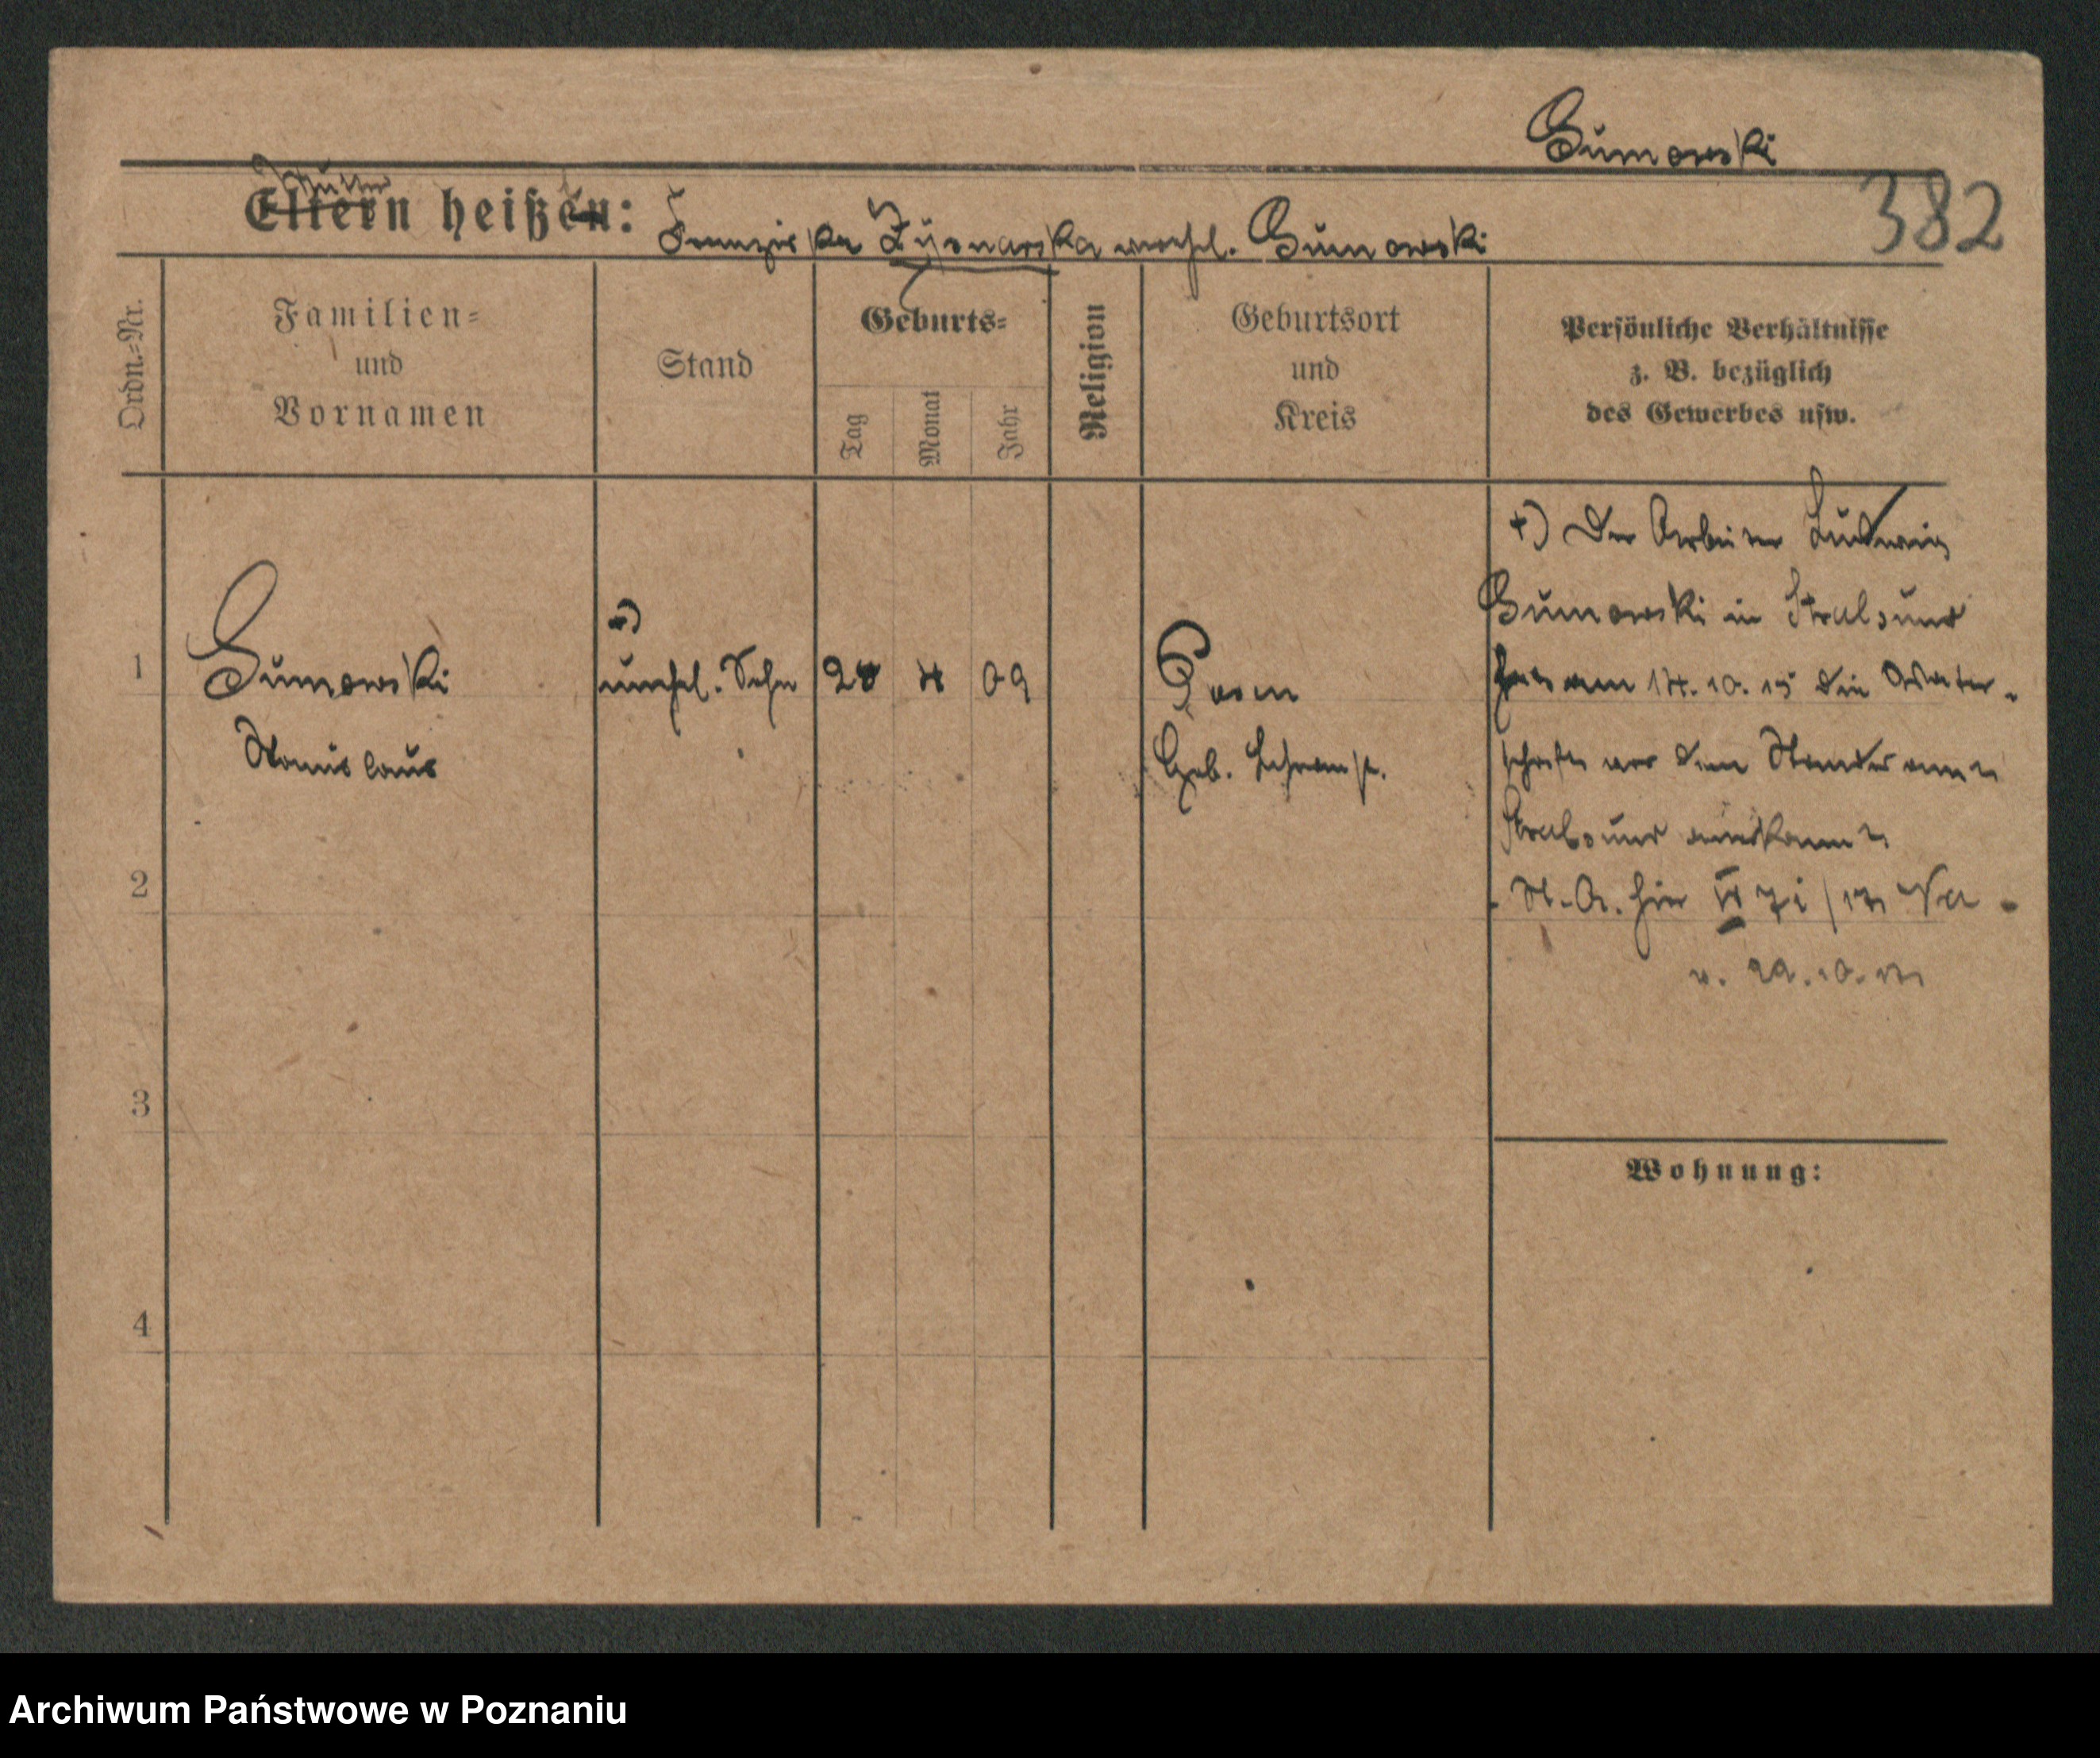 Gumowski
382
Mutter
Eltern heißen: Franziska Zysnarska verehel. Gumowski
Ordn.=Nr.
Familien=
und
Vornamen
Stand
Geburts=
Tag
Monat
Jahr
Religion
Geburtsort
und
Kreis
Persönliche Verhältnisse
z. B. bezüglich
des Gewerbes usw.
1
Gumowski
Stanislaus
+)
unehel. Sohn
28
4
09
Posen
Geb. Lehranst.
+) Der Arbeiter Ludwig
Gumowski in Stralsund
hat am 14.10.15 die Vater-
schaft vor dem Standesamt
Stralsund anerkannt
St.-A. hier
2
3
4
Wohnung:
Archiwum Państwowe w Poznaniu